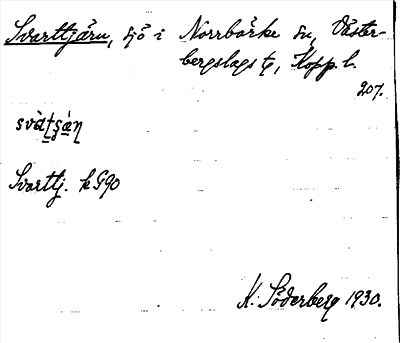 Svarttjärn, sjö i Norrbärke sn, Väster-
bergslags tg, Kopp. l.
207.
Svarttj. k G90
K. Söderberg 1930.